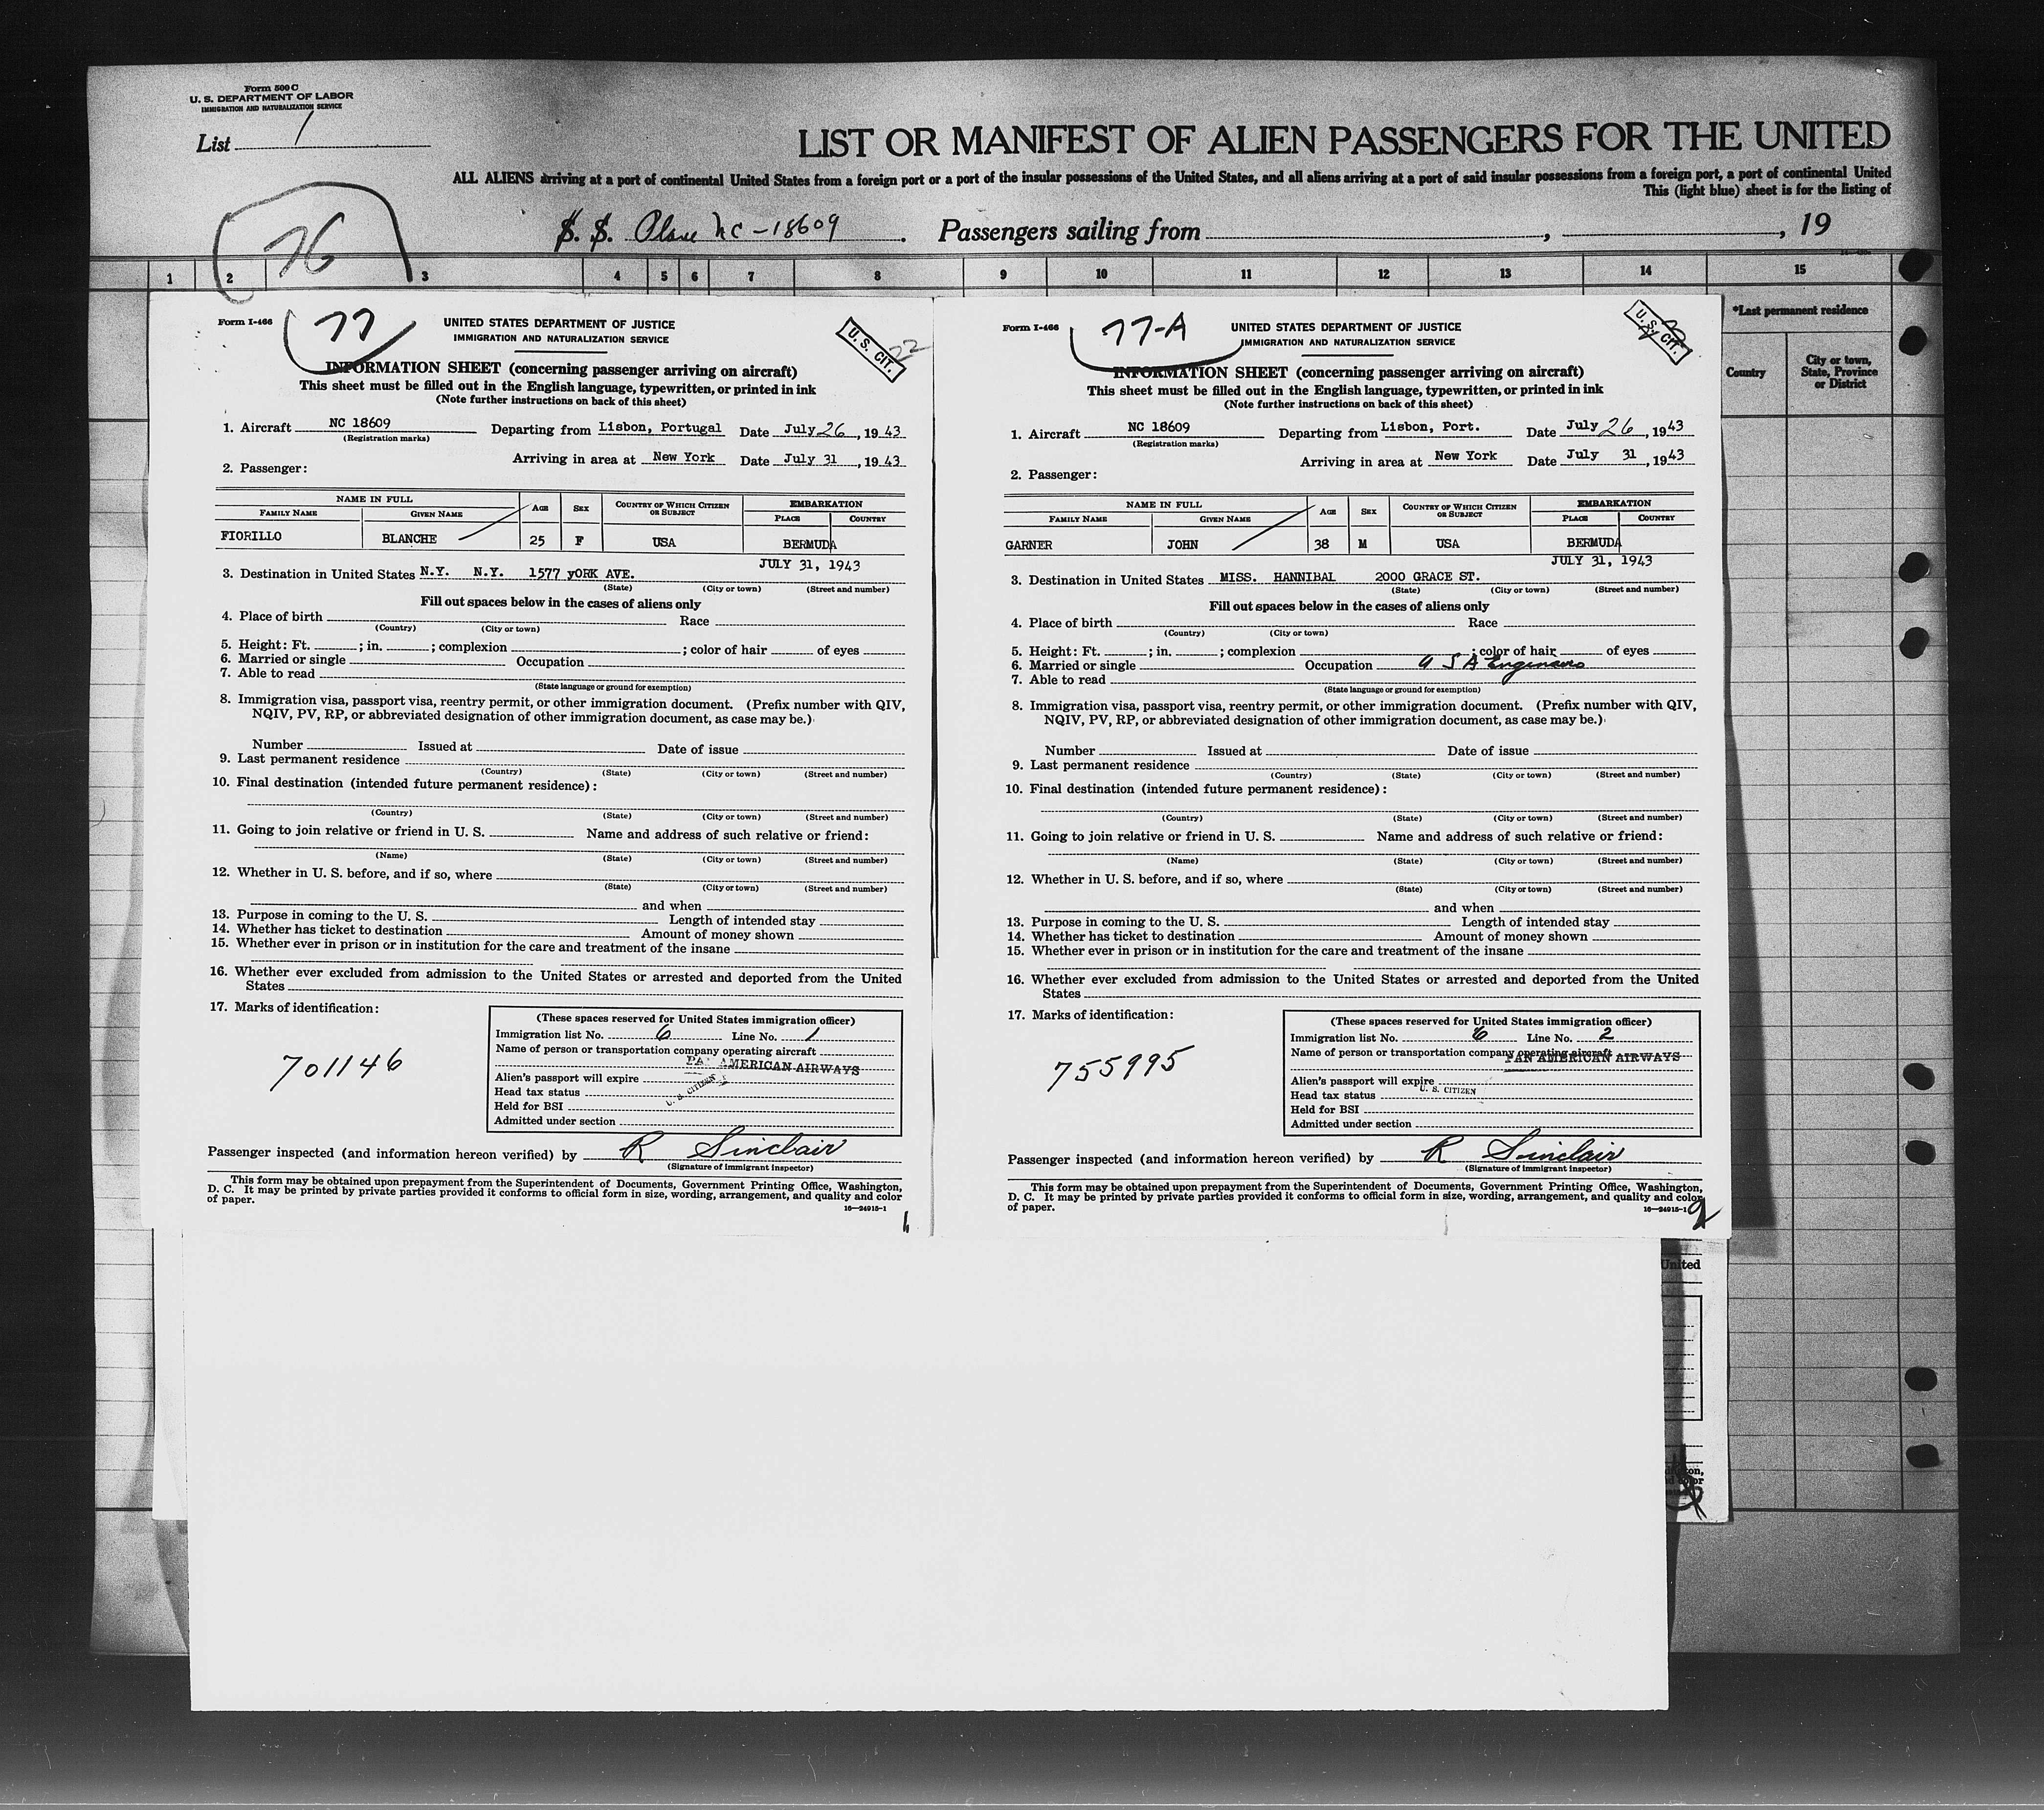 Form 500 C
U. S. DEPARTMENT OF LABOR
IMMIGRATION AND NATURALIZATION SERVICE
List 1
LIST OR MANIFEST OF ALIEN PASSENGERS FOR THE UNITED
ALL ALIENS arriving at a port of continental United States from a foreign port or a port of the insular possessions of the United States, and all aliens arriving at a port of said insular possessions from a foreign port, a port of continental United
This (light blue) sheet is for the listing of
76
S. S. Plane NC-18609. Passengers sailing from , , 19
1 2 3 4 5 6 7 8 9 10 11 12 13 14 15
*Last permanent residence
Country
City or town,
State, Province
or District
Form I-466
77
UNITED STATES DEPARTMENT OF JUSTICE
IMMIGRATION AND NATURALIZATION SERVICE
U. S. CIT.
22
INFORMATION SHEET (concerning passenger arriving on aircraft)
This sheet must be filled out in the English language, typewritten, or printed in ink
(Note further instructions on back of this sheet)
1. Aircraft NC 18609 Departing from Lisbon, Portugal Date July 26, 1943
(Registration marks)
Arriving in area at New York Date July 31, 1943
2. Passenger:
NAME IN FULL AGE SEX COUNTRY OF WHICH CITIZEN OR SUBJECT EMBARKATION
FAMILY NAME GIVEN NAME PLACE COUNTRY
FIORILLO BLANCHE 25 F USA BERMUDA
JULY 31, 1943
3. Destination in United States N.Y. N.Y. 1577 yORK AVE.
(State) (City or town) (Street and number)
Fill out spaces below in the cases of aliens only
4. Place of birth Race
(Country) (City or town)
5. Height: Ft. ; in. ; complexion ; color of hair of eyes
6. Married or single Occupation
7. Able to read
(State language or ground for exemption)
8. Immigration visa, passport visa, reentry permit, or other immigration document. (Prefix number with QIV,
NQIV, PV, RP, or abbreviated designation of other immigration document, as case may be.)
Number Issued at Date of issue
9. Last permanent residence
(Country) (State) (City or town) (Street and number)
10. Final destination (intended future permanent residence):
(Country) (State) (City or town) (Street and number)
11. Going to join relative or friend in U. S. Name and address of such relative or friend:
(Name) (State) (City or town) (Street and number)
12. Whether in U. S. before, and if so, where
(State) (City or town) (Street and number)
and when
13. Purpose in coming to the U. S. Length of intended stay
14. Whether has ticket to destination Amount of money shown
15. Whether ever in prison or in institution for the care and treatment of the insane
16. Whether ever excluded from admission to the United States or arrested and deported from the United
States
17. Marks of identification:
701146
(These spaces reserved for United States immigration officer)
Immigration list No. 6 Line No. 1
Name of person or transportation company operating aircraft
PAN AMERICAN AIRWAYS
Alien's passport will expire
U. S. CITIZEN
Head tax status
Held for BSI
Admitted under section
Passenger inspected (and information hereon verified) by R Sinclair
(Signature of immigrant inspector)
This form may be obtained upon prepayment from the Superintendent of Documents, Government Printing Office, Washington,
D. C. It may be printed by private parties provided it conforms to official form in size, wording, arrangement, and quality and color
of paper.
16—24915-1
1
Form I-466
77-A
UNITED STATES DEPARTMENT OF JUSTICE
IMMIGRATION AND NATURALIZATION SERVICE
U. S. CIT.
INFORMATION SHEET (concerning passenger arriving on aircraft)
This sheet must be filled out in the English language, typewritten, or printed in ink
(Note further instructions on back of this sheet)
1. Aircraft NC 18609 Departing from Lisbon, Port. Date July 26, 1943
(Registration marks)
Arriving in area at New York Date July 31, 1943
2. Passenger:
NAME IN FULL AGE SEX COUNTRY OF WHICH CITIZEN OR SUBJECT EMBARKATION
FAMILY NAME GIVEN NAME PLACE COUNTRY
GARNER JOHN 38 M USA BERMUDA
JULY 31, 1943
3. Destination in United States MISS. HANNIBAL 2000 GRACE ST.
(State) (City or town) (Street and number)
Fill out spaces below in the cases of aliens only
4. Place of birth Race
(Country) (City or town)
5. Height: Ft. ; in. ; complexion ; color of hair of eyes
6. Married or single Occupation U S A Engineers
7. Able to read
(State language or ground for exemption)
8. Immigration visa, passport visa, reentry permit, or other immigration document. (Prefix number with QIV,
NQIV, PV, RP, or abbreviated designation of other immigration document, as case may be.)
Number Issued at Date of issue
9. Last permanent residence
(Country) (State) (City or town) (Street and number)
10. Final destination (intended future permanent residence):
(Country) (State) (City or town) (Street and number)
11. Going to join relative or friend in U. S. Name and address of such relative or friend:
(Name) (State) (City or town) (Street and number)
12. Whether in U. S. before, and if so, where
(State) (City or town) (Street and number)
and when
13. Purpose in coming to the U. S. Length of intended stay
14. Whether has ticket to destination Amount of money shown
15. Whether ever in prison or in institution for the care and treatment of the insane
16. Whether ever excluded from admission to the United States or arrested and deported from the United
States
17. Marks of identification:
755995
(These spaces reserved for United States immigration officer)
Immigration list No. 6 Line No. 2
Name of person or transportation company operating aircraft
PAN AMERICAN AIRWAYS
Alien's passport will expire
U. S. CITIZEN
Head tax status
Held for BSI
Admitted under section
Passenger inspected (and information hereon verified) by R Sinclair
(Signature of immigrant inspector)
This form may be obtained upon prepayment from the Superintendent of Documents, Government Printing Office, Washington,
D. C. It may be printed by private parties provided it conforms to official form in size, wording, arrangement, and quality and color
of paper.
16—24915-1
2
United